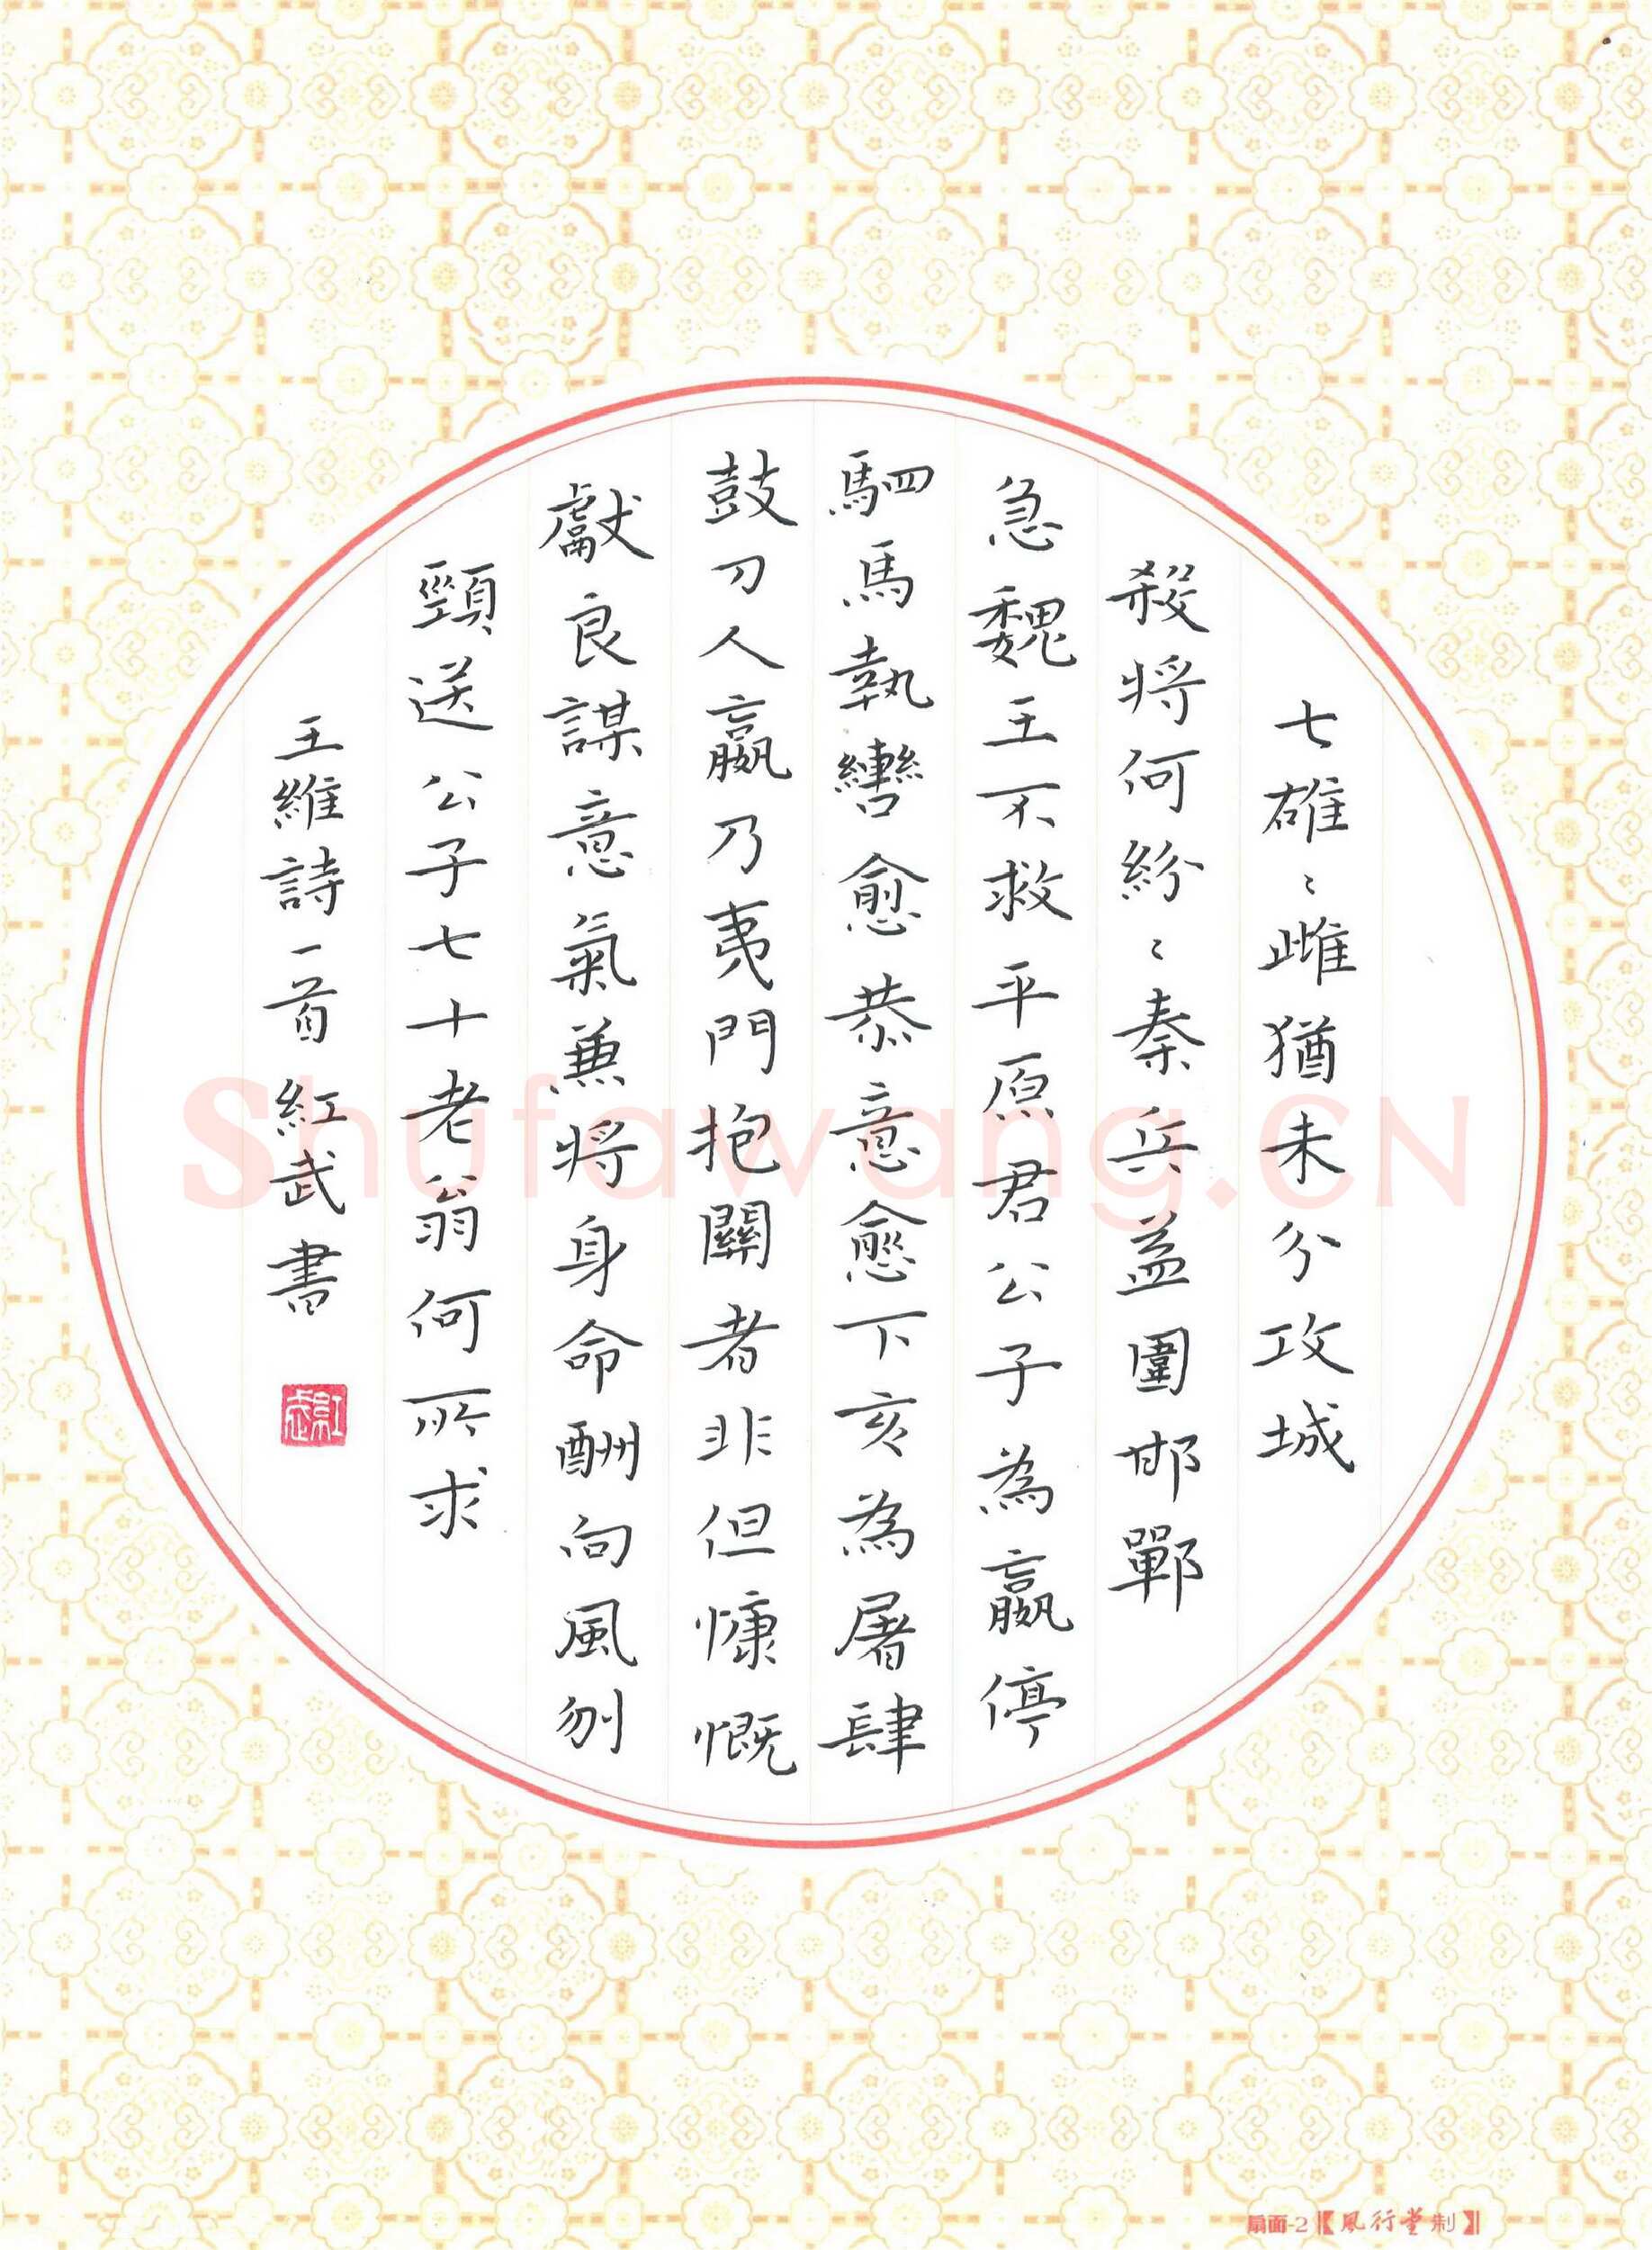 七雄〻雌猶未分攻城
殺將何紛〻秦兵益圍邯鄲
急魏王不救平原君公子為嬴停
駟馬執轡愈恭意愈下亥為屠肆
鼓刀人嬴乃夷門抱關者非但慷慨
獻良謀意氣兼將身命酬向風刎
頸送公子七十老翁何所求
王維詩一首紅武書
紅武
Shufawang.CN
扇面-2【風行堂制】